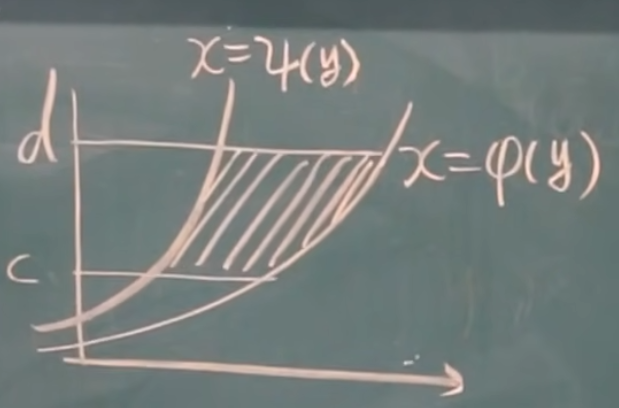 x=ψ(y)
d
x=φ(y)
c